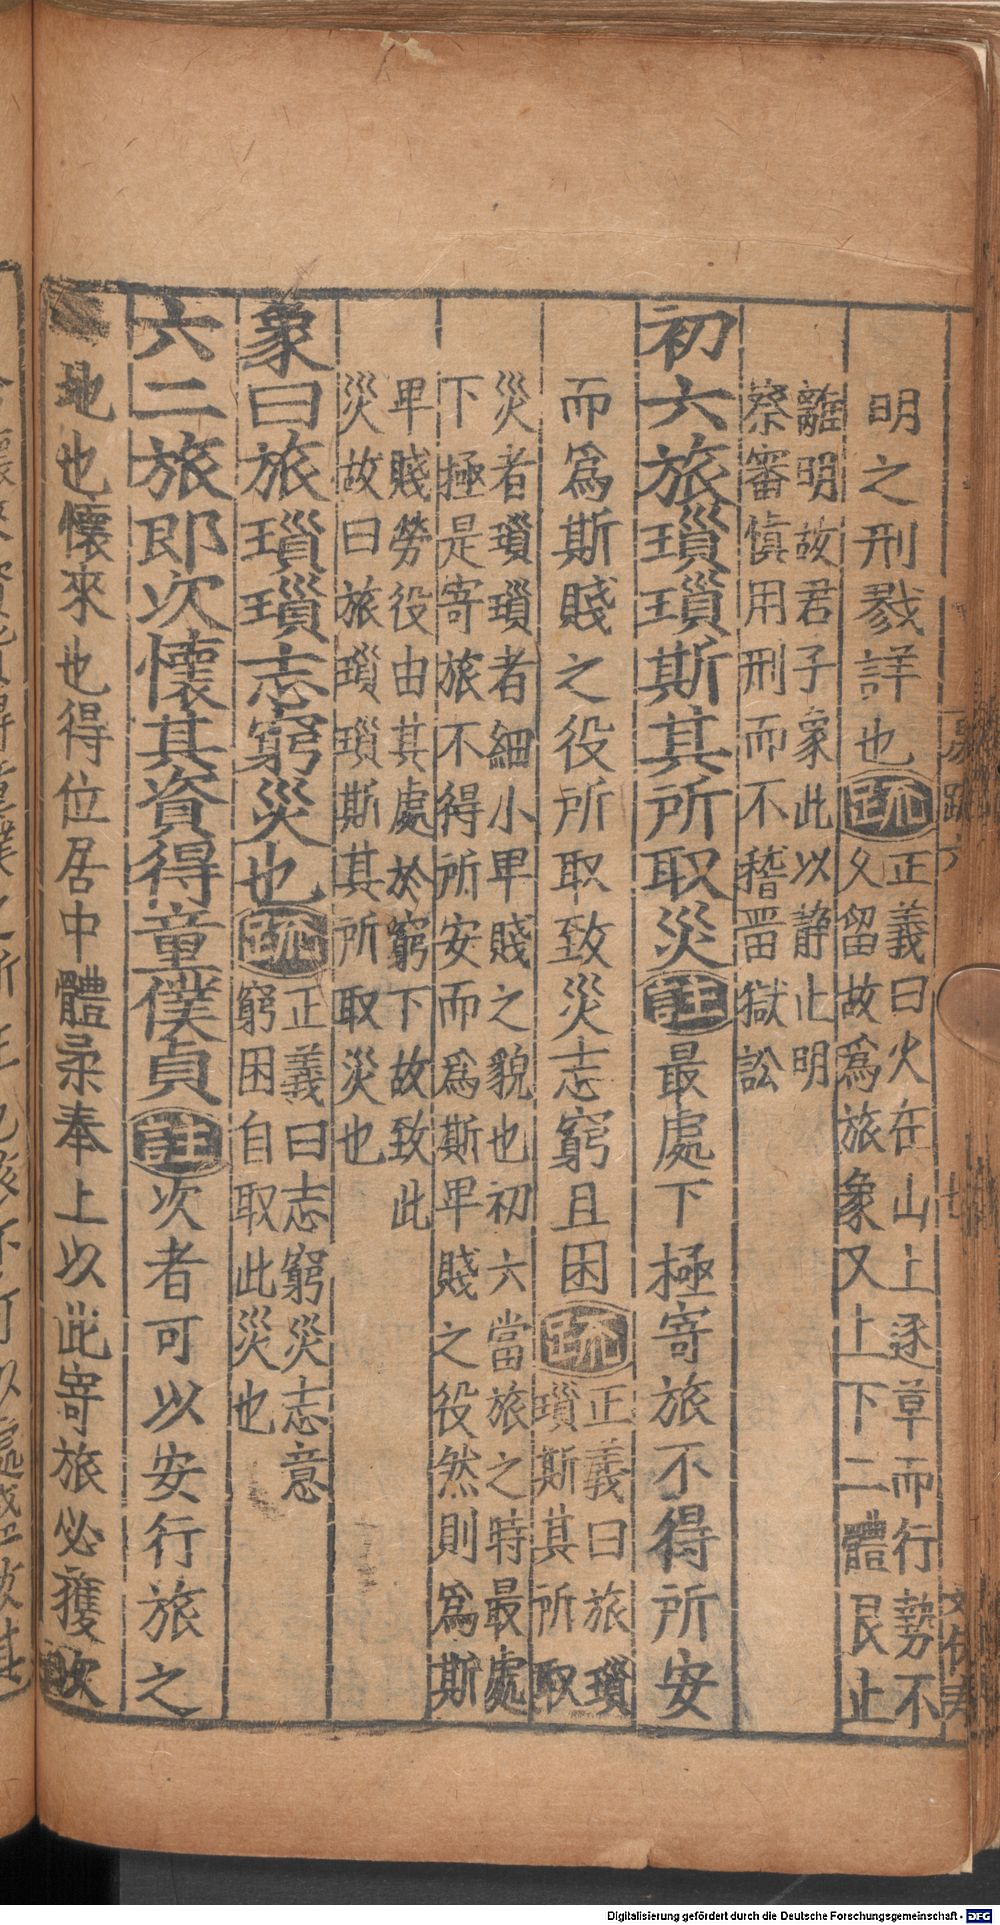 明之刑戮詳也疏正義曰火在山上逐草而行勢不
久留故爲旅象又上下二體艮止
離明故君子象此以静止明
察審慎用刑而不稽畱獄訟
初六旅瑣瑣斯其所取災註最處下極寄旅不得所安
而爲斯賤之役所取致災志窮且困疏正義曰旅瑣
瑣斯其所取
災者瑣瑣者細小卑賤之貌也初六當旅之時最處
下極是寄旅不得所安而爲斯卑賤之役然則爲斯
卑賤勞役由其處於窮下故致此
災故曰旅瑣瑣斯其所取災也
象曰旅瑣瑣志窮災也疏正義曰志窮災志意
窮困自取此災也
六二旅即次懷其資得童僕貞註次者可以安行旅之
地也懷來也得位居中體柔奉上以此寄旅必獲次
易疏六
七
Digitalisierung gefördert durch die Deutsche Forschungsgemeinschaft - DFG